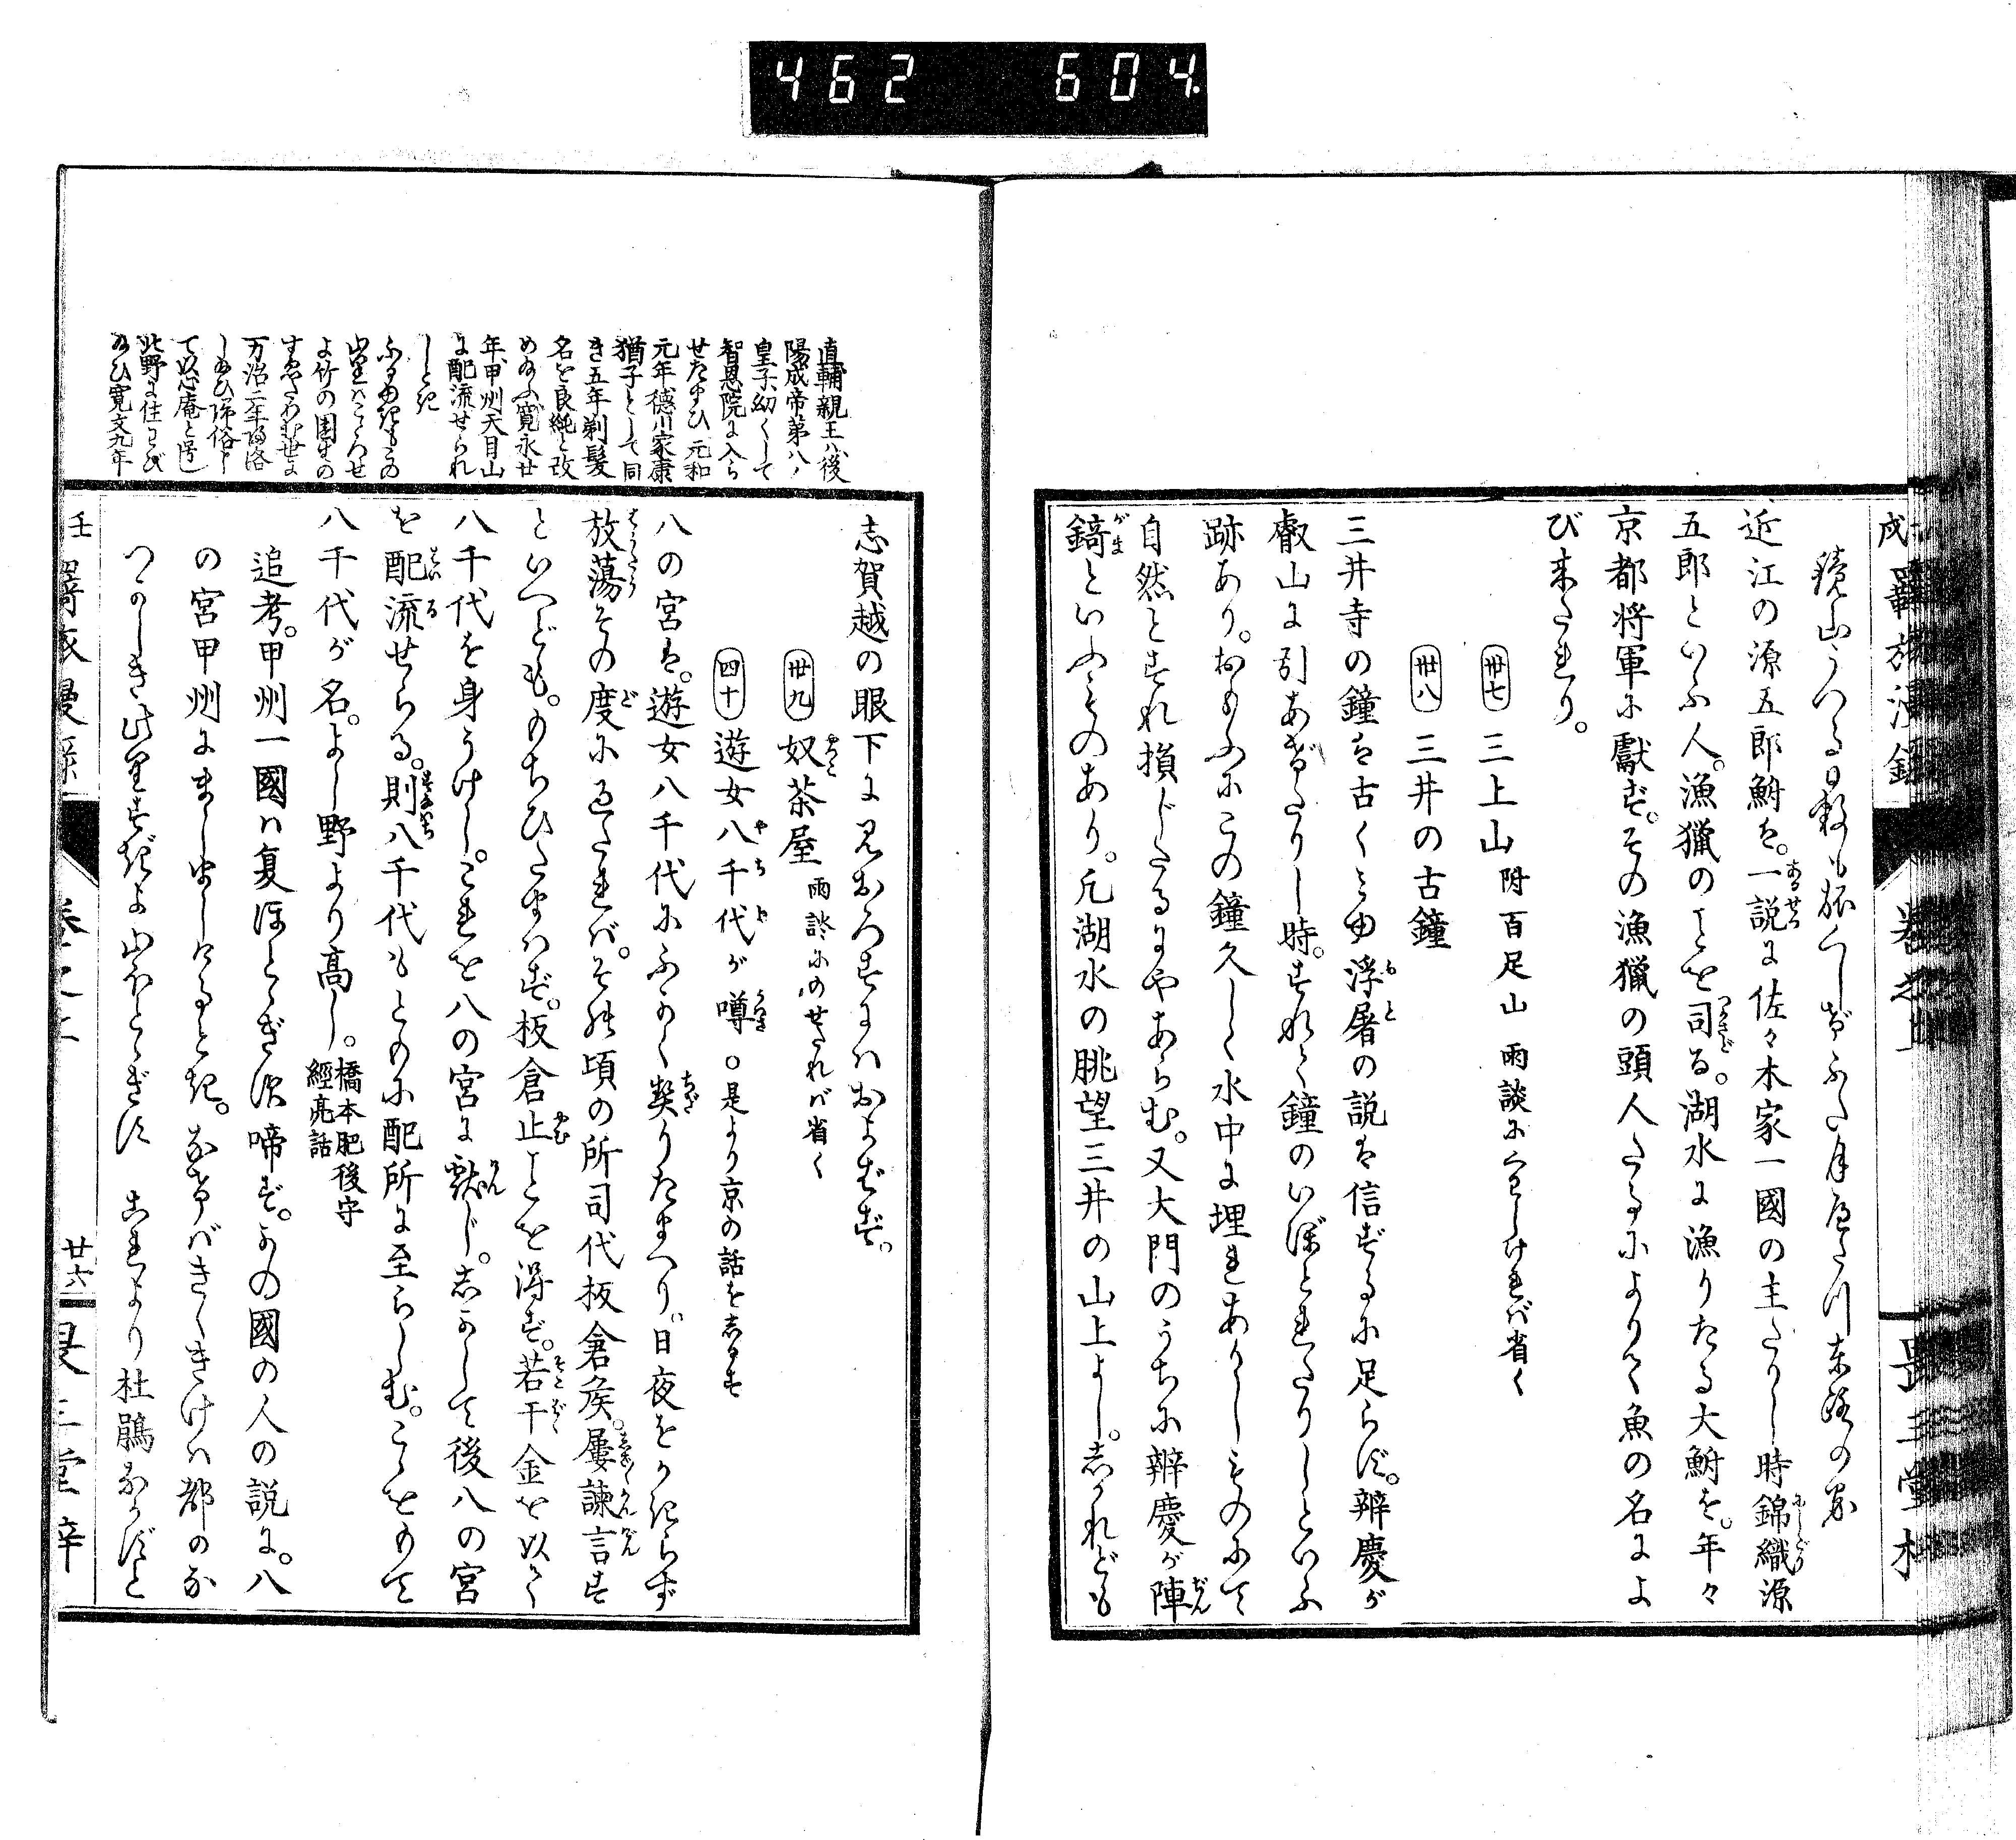 462 604
鏡山うつる日数も旅
近江の源五郎鮒は。一説に佐々木家一國の主たりし時錦織源
五郎といふ人。漁獵のことを司る。湖水に漁りたる大鮒を。年々
京都将軍に獻ず。その漁獵の頭人たるによりて魚の名によ
び来れり。
卅七 三上山 附百足山 雨談にくはしければ省く
卅八 三井の古鐘
三井寺の鐘は古くみゆ浮屠の説は信ずるに足らず。辨慶が
叡山に引あげたりし時。すれて鐘のいぼとれたりしといふ
跡あり。おもふにこの鐘久しく水中に埋れありしものにて
自然とすれ損じたるにやあらむ。又大門のうちに辨慶が陣
鎬といふものあり。凡湖水の眺望三井の山上よし。志かれども
志賀越の眼下に見おろすにはおよばず。
卅九 奴茶屋 雨談にのせたれば省く
四十 遊女八千代が噂 ○是より京の話を志るす
八の宮は。遊女八千代にふかく契りたまへり。日夜をかぎらず
放蕩その度に過たれば。その頃の所司代板倉矦。屢諫言す
といへども。もちひたまはず。板倉止ことを得ず。若干金を以て
八千代を身うけし。これを八の宮に獻じ。志かして後八の宮
を配流せらる。則八千代もともに配所に至らしむ。こゝをもて
八千代が名。よし野より高し。橋本肥後守經亮話
追考。甲州一國は夏ほとゝぎす啼ず。かの國の人の説に。八
の宮甲州にましましけるとき。なけばきくきけは都の
つかしき此里すぎよ山ほとゝぎす これより杜鵑なかずと
直輔親王は後
陽成帝第八ノ
皇子幼くして
智恩院に入ら
せたまひ元和
元年徳川家康
猶子として同
き五年剃髪
名を良純と改
めたまふ寛永廿
年甲州天目山
に配流せられ
しとき
ふるゆきもこの
山里はこゝろせ
よ竹の園生の
すゑたわむ世に
万治二年帰洛
したまひ歸俗し
て以心庵と号し
北野に住
たまひ寛文九年
卷之上
廿六